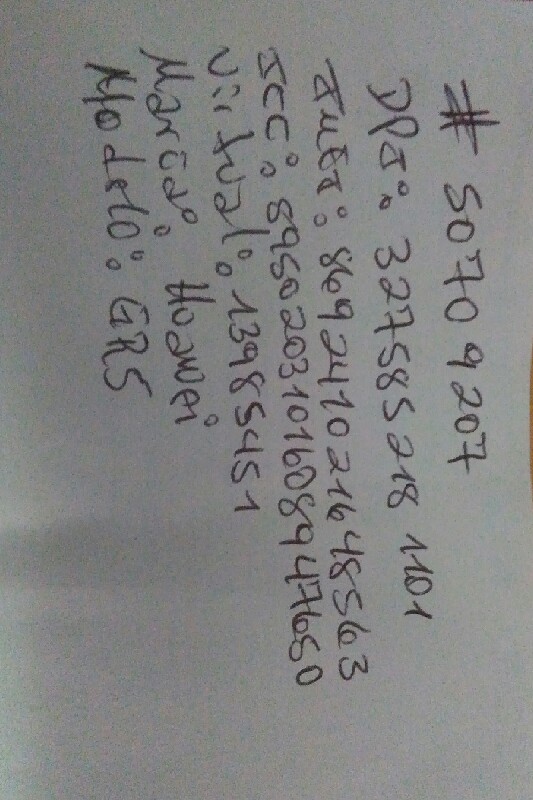 # 5070 9207
DPI: 327585218 1101
IMEI: 869241021648563
ICC: 8950203101608947650
Virtual: 13985451
Marca: Huawei
Modelo: GR5